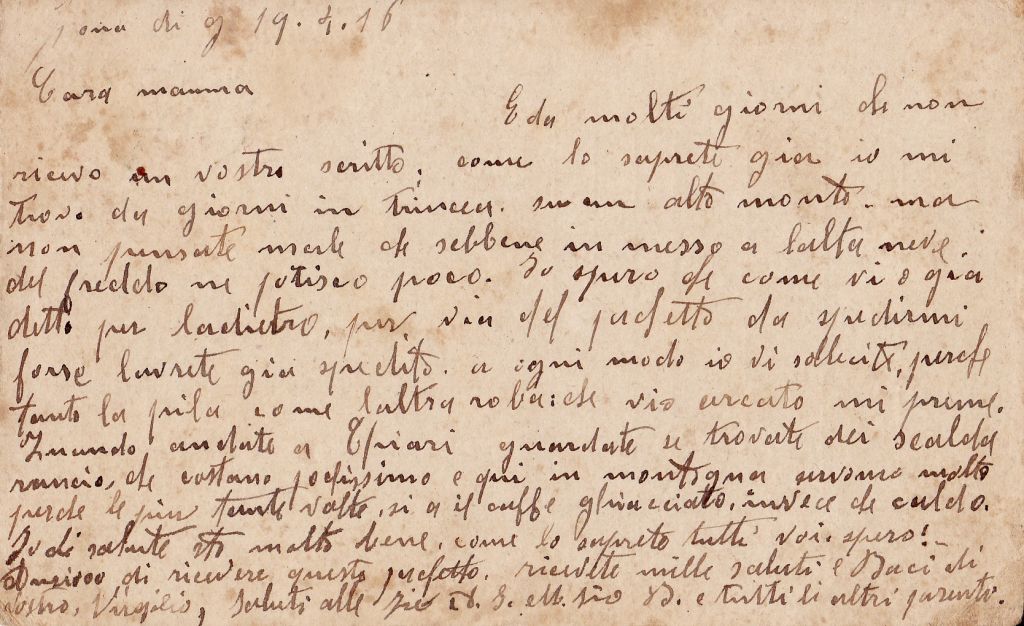 Zona di g 19.4.16
Cara mamma
E da molti giorni che non
ricevo un vostro scritto, come lo saprete gia io mi
trovo da giorni in trincea. su un alto monte. ma
non pensate male che sebbene in messo a lalta neve
del freddo ne potisco poco. Io spero che come vi o gia
detto per ladietro, per via del pachetto da spedirmi
forse lavrete gia spedito. a ogni modo io vi solecito, perche
tanto la pila come laltra roba: che vi o cercato mi preme.
Quando andate a Chiari guardate se trovate dei scalda
rancio, che costano pochissimo e qui in montagna servono molto
perche le piu tante volte, si a il caffe ghiacciato, invece de caldo.
Io di salute sto molto bene, come lo spero tutti voi. spero! -
di ricevere questo pachetto. ricevete mille saluti e Baci di
vostro, Virgilio, Saluti alle zie D. S. e M. zio B. e tutti li altri parenti.